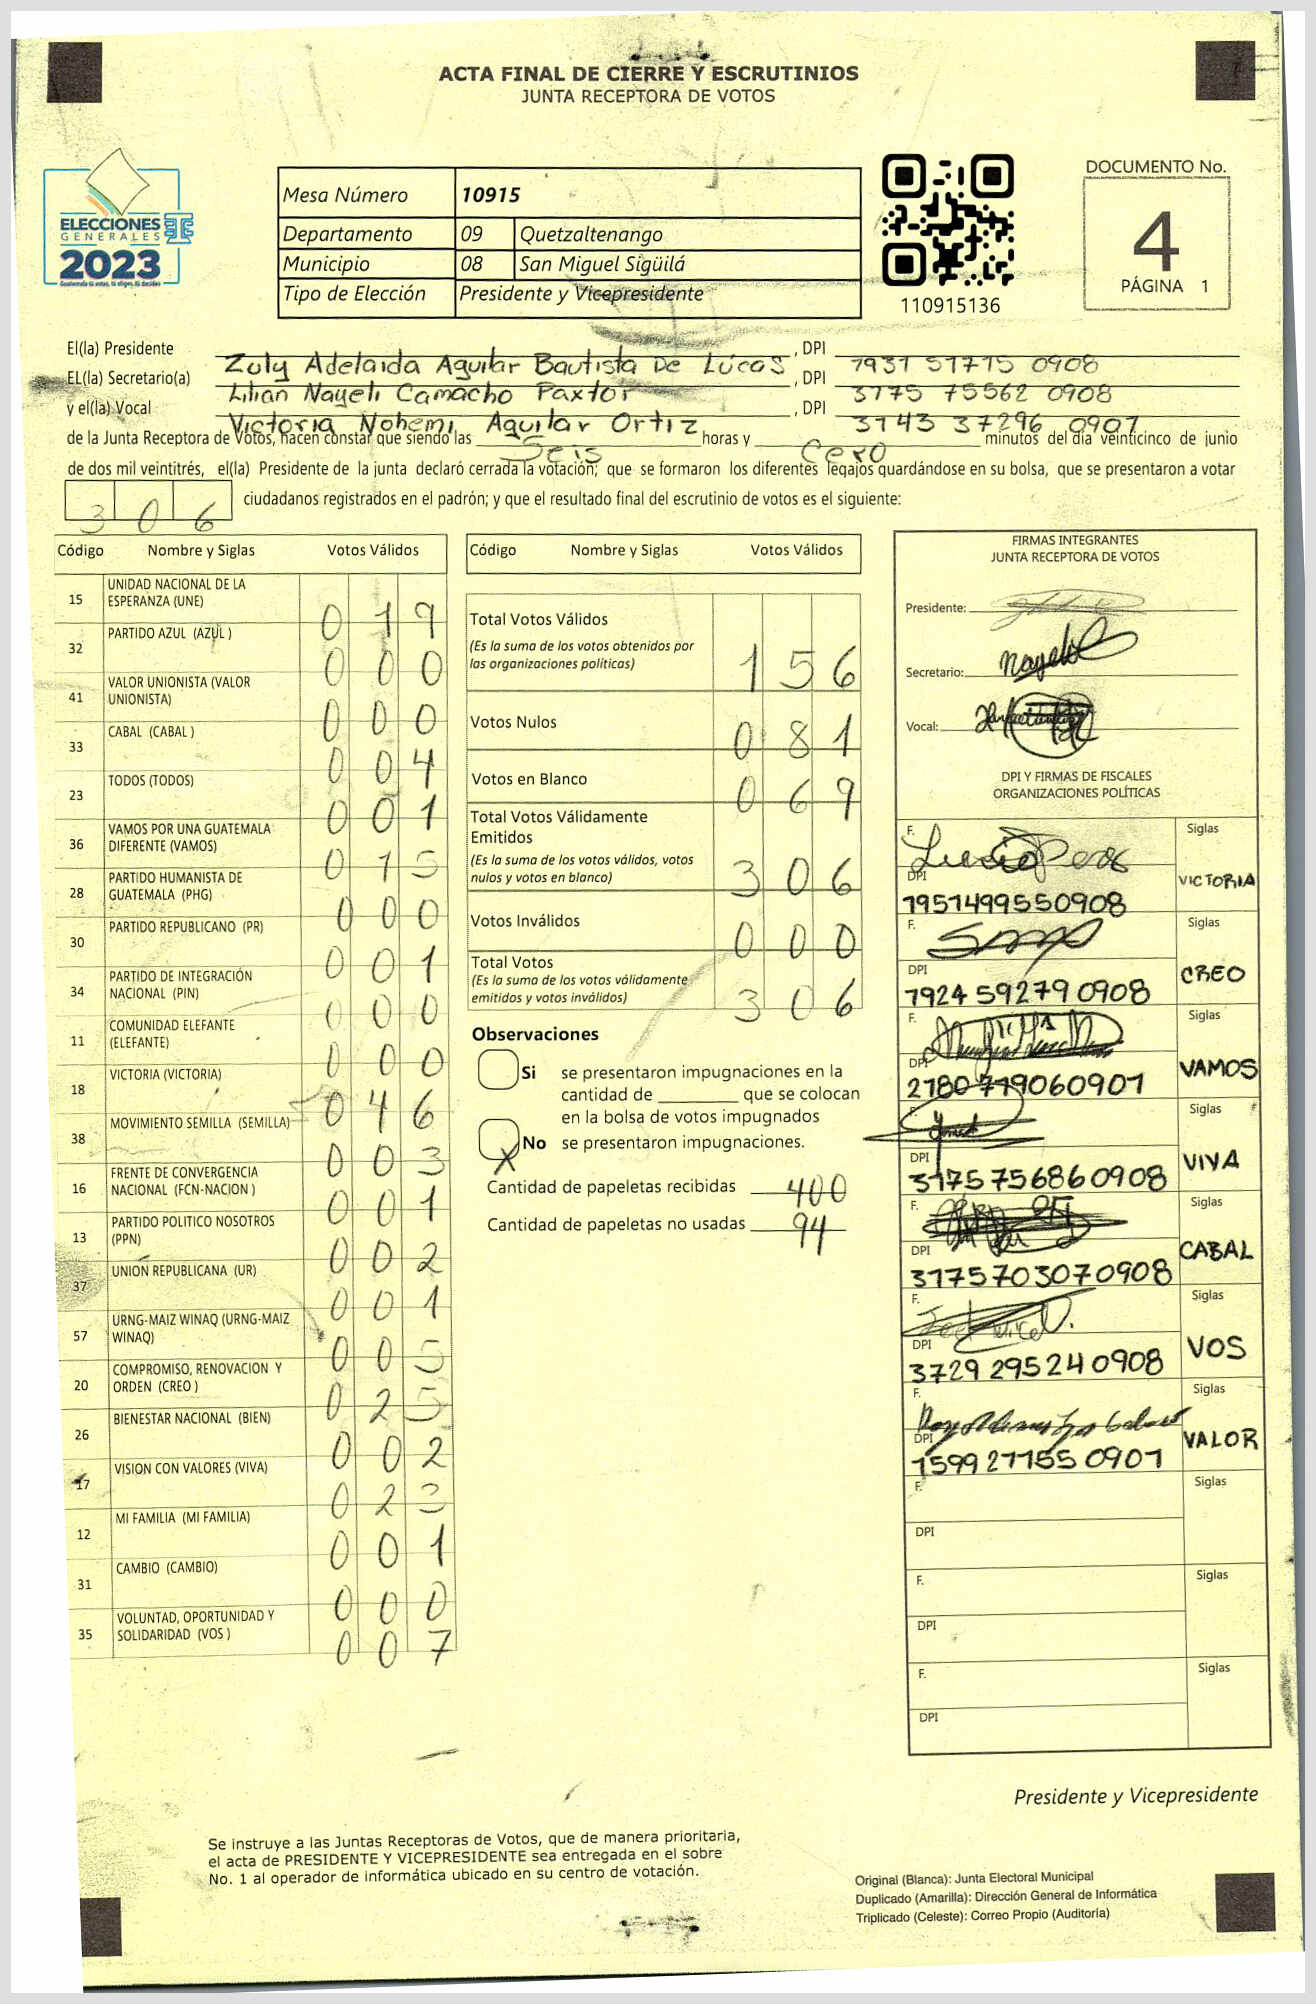 ACTA FINAL DE CIERRE Y ESCRUTINIOS
JUNTA RECEPTORA DE VOTOS
ELECCIONES
GENERALES
2023
Guatemala tú votas, tú eliges, tú decides
Mesa Número 10915
Departamento 09 Quetzaltenango
Municipio 08 San Miguel Sigüilá
Tipo de Elección Presidente y Vicepresidente
110915136
DOCUMENTO No.
4
PÁGINA 1
El(la) Presidente Zuly Adelaida Aguilar Bautista De Lúcas, DPI 1931 51715 0908
EL(la) Secretario(a) Lilian Nayeli Camacho Paxtor, DPI 3175 75562 0908
y el(la) Vocal Victoria Nohemi Aguilar Ortiz, DPI 3143 37296 0901
de la Junta Receptora de Votos, hacen constar que siendo las Seis horas y Cero minutos del día veinticinco de junio
de dos mil veintitrés, el(la) Presidente de la junta declaró cerrada la votación; que se formaron los diferentes legajos guardándose en su bolsa, que se presentaron a votar
306 ciudadanos registrados en el padrón; y que el resultado final del escrutinio de votos es el siguiente:
Código Nombre y Siglas Votos Válidos
15 UNIDAD NACIONAL DE LA ESPERANZA (UNE) 019
32 PARTIDO AZUL (AZUL ) 000
41 VALOR UNIONISTA (VALOR UNIONISTA) 000
33 CABAL (CABAL ) 004
23 TODOS (TODOS) 001
36 VAMOS POR UNA GUATEMALA DIFERENTE (VAMOS) 015
28 PARTIDO HUMANISTA DE GUATEMALA (PHG) 000
30 PARTIDO REPUBLICANO (PR) 001
34 PARTIDO DE INTEGRACIÓN NACIONAL (PIN) 000
11 COMUNIDAD ELEFANTE (ELEFANTE) 000
18 VICTORIA (VICTORIA) 046
38 MOVIMIENTO SEMILLA (SEMILLA) 003
16 FRENTE DE CONVERGENCIA NACIONAL (FCN-NACION ) 001
13 PARTIDO POLITICO NOSOTROS (PPN) 002
37 UNION REPUBLICANA (UR) 001
57 URNG-MAIZ WINAQ (URNG-MAIZ WINAQ) 005
20 COMPROMISO, RENOVACION Y ORDEN (CREO ) 025
26 BIENESTAR NACIONAL (BIEN) 002
17 VISION CON VALORES (VIVA) 023
12 MI FAMILIA (MI FAMILIA) 001
31 CAMBIO (CAMBIO) 000
35 VOLUNTAD, OPORTUNIDAD Y SOLIDARIDAD (VOS ) 007
Código Nombre y Siglas Votos Válidos
Total Votos Válidos
(Es la suma de los votos obtenidos por
las organizaciones políticas) 156
Votos Nulos 081
Votos en Blanco 069
Total Votos Válidamente
Emitidos
(Es la suma de los votos válidos, votos
nulos y votos en blanco) 306
Votos Inválidos 000
Total Votos
(Es la suma de los votos válidamente
emitidos y votos inválidos) 306
Observaciones
Si se presentaron impugnaciones en la
cantidad de ________ que se colocan
en la bolsa de votos impugnados
X No se presentaron impugnaciones.
Cantidad de papeletas recibidas 400
Cantidad de papeletas no usadas 94
FIRMAS INTEGRANTES
JUNTA RECEPTORA DE VOTOS
Presidente:
Secretario: Nayeli
Vocal:
DPI Y FIRMAS DE FISCALES
ORGANIZACIONES POLÍTICAS
F. Siglas
DPI 1951499550908 VICTORIA
F. Siglas
DPI 1924 59279 0908 CREO
F. Siglas
DPI 2180719060901 VAMOS
F. Siglas
DPI 3175756860908 VIVA
F. Siglas
DPI 3175703070908 CABAL
F. Siglas
DPI 3729 29524 0908 VOS
F. Siglas
DPI 1599 27155 0901 VALOR
F. Siglas
DPI
F. Siglas
DPI
F. Siglas
DPI
Presidente y Vicepresidente
Se instruye a las Juntas Receptoras de Votos, que de manera prioritaria,
el acta de PRESIDENTE Y VICEPRESIDENTE sea entregada en el sobre
No. 1 al operador de informática ubicado en su centro de votación.
Original (Blanca): Junta Electoral Municipal
Duplicado (Amarilla): Dirección General de Informática
Triplicado (Celeste): Correo Propio (Auditoría)